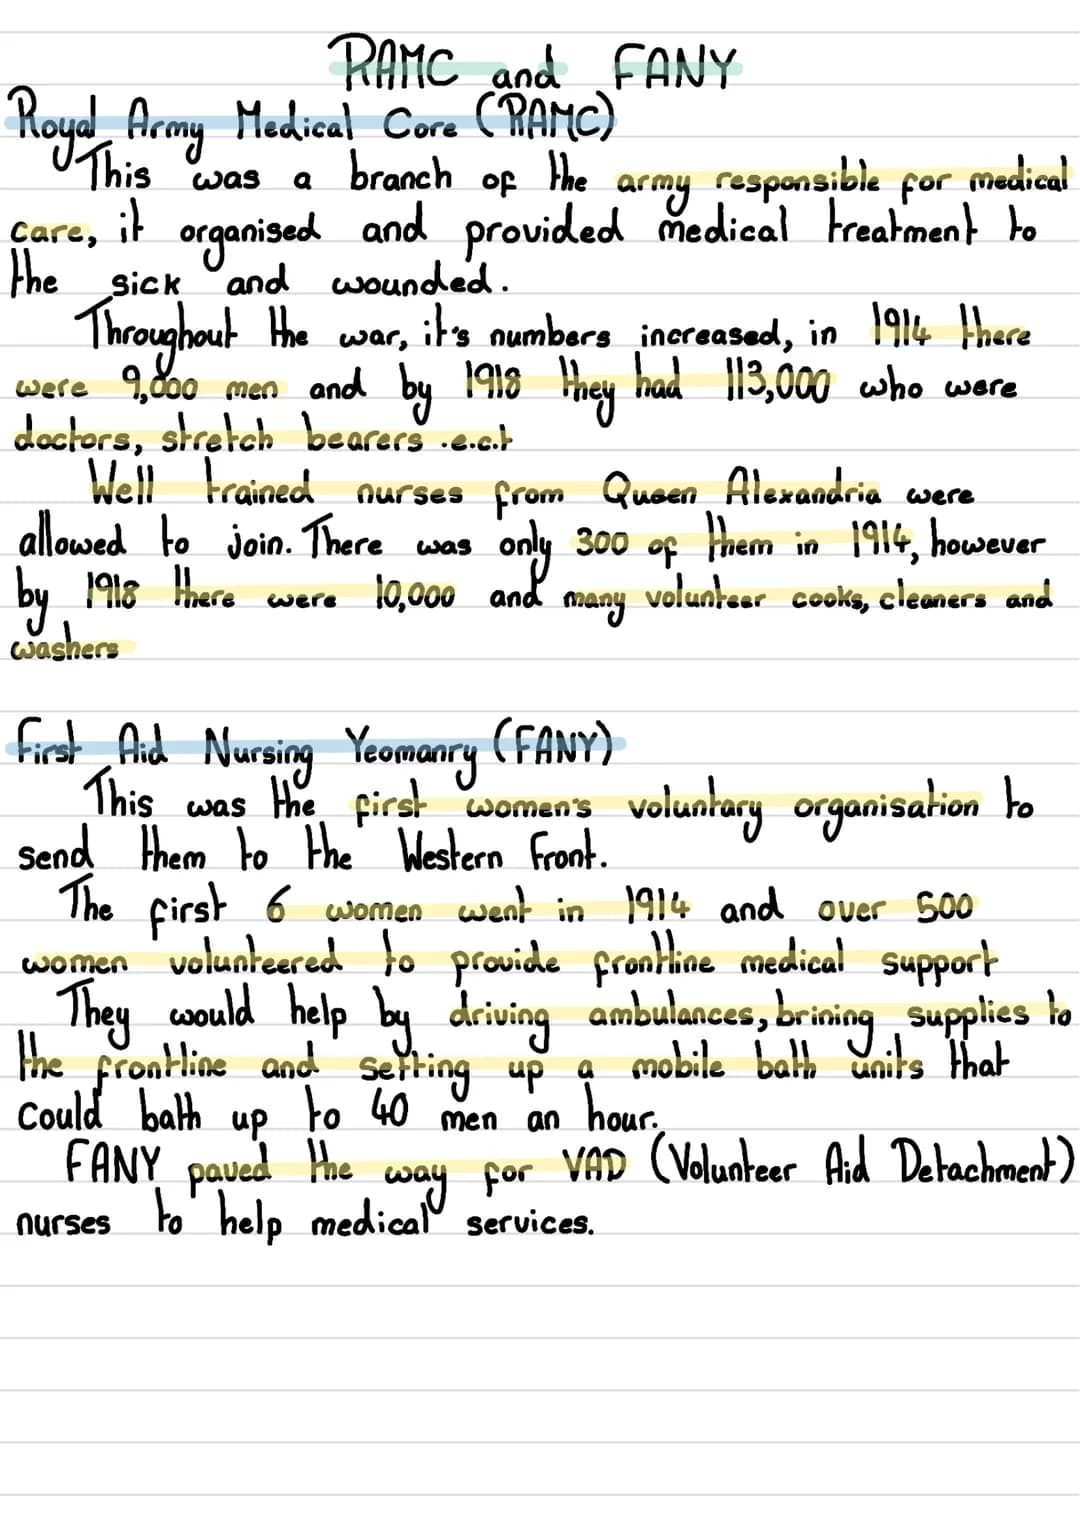 RAMC and FANY
Royal Army Medical Core (RAMC)
This was a branch of the army responsible for medical
care, it organised and provided medical treatment to
the sick and wounded.
Throughout the war, it's numbers increased, in 1914 there
were 9,000 men and by 1918 they had 113,000 who were
doctors, stretch bearers .e.c.t
Well trained nurses from Queen Alexandria were
allowed to join. There was only 300 of them in 1914, however
by 1918 there were 10,000 and many volunteer cooks, cleaners and
washers
First Aid Nursing Yeomanry (FANY)
This was the first women's voluntary organisation to
send them to the Western Front.
The first 6 women went in 1914 and over 500
women volunteered to provide frontline medical support
They would help by driving ambulances, brining supplies to
the frontline and setting up a mobile bath units that
could bath up to 40 men an hour.
FANY paved the way for VAD (Volunteer Aid Detachment)
nurses to help medical services.